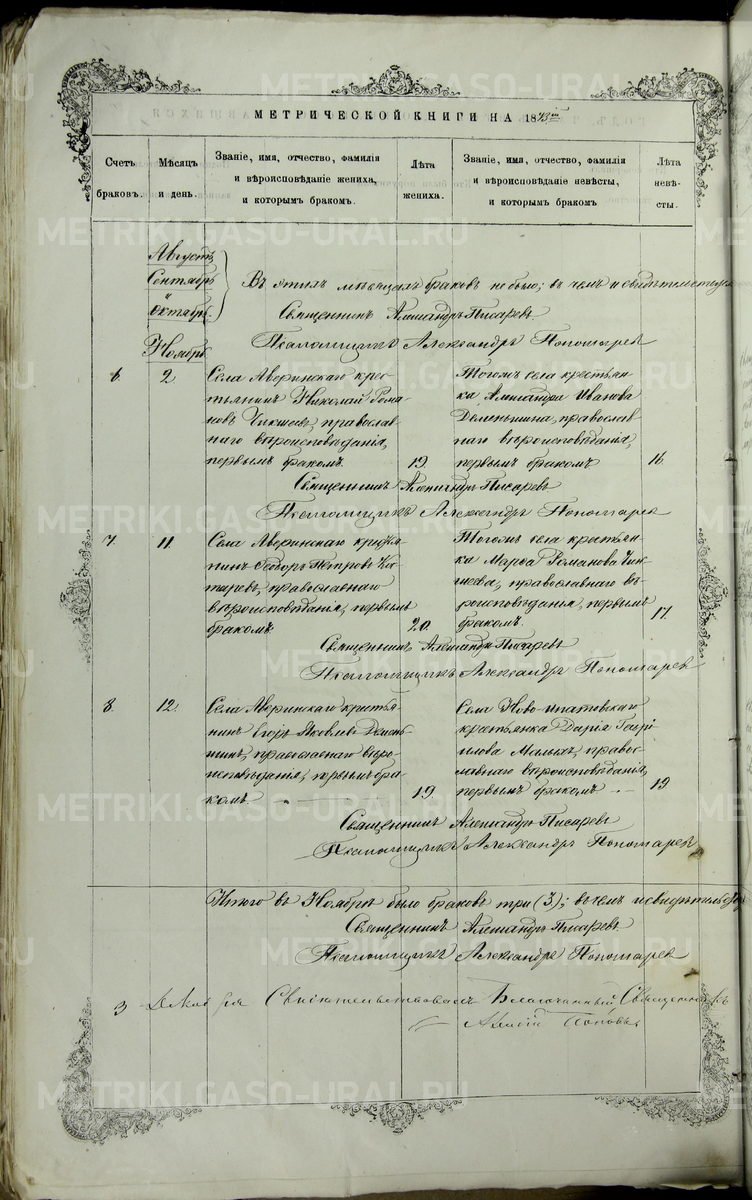 МЕТРИЧЕСКОЙ КНИГИ НА 18
Счетъ браковъ.
Мѣсяцъ и день.
Званіе, имя, отчество, фамилія и вѣроисповѣданіе жениха, и которымъ бракомъ.
Лѣта жениха.
Званіе, имя, отчество, фамилія и вѣроисповѣданіе невѣсты, и которымъ бракомъ
Лѣта невѣсты.
Августъ
Сентябрь
и
Октябрь
Въ этихъ мѣсяцахъ браковъ не было; въ чемъ и
Священникъ Александръ Писаревъ
Псаломщикъ Александръ Пономарев
Ноябрь
6.
2
Села Аверинскаго крес-
тьянинъ Николай Рома-
новъ православ-
наго вѣроисповѣданія,
первымъ бракомъ.
19.
Тогожъ села крестьян-
ка Александра Иванова
Деменьшина, православ-
наго вѣроисповѣданія,
первымъ бракомъ
16.
Священникъ Александръ Писаревъ
Псаломщикъ Александръ Пономарев
7.
11.
Села Аверинскаго
Ѳеодоръ Петровъ
православнаго
вѣроисповѣданія, первымъ
бракомъ.
20.
Тогожъ села крестьян-
ка Марѳа Романова
православнаго вѣ-
роисповѣданія, первымъ
бракомъ.
17.
Священникъ Александръ Писаревъ
Псаломщикъ Александръ Пономарев
8.
12.
Села Аверинскаго крестья-
нинъ Егоръ Яковлевъ Демень-
шинъ, православнаго вѣро-
исповѣданія, первымъ бра-
комъ.
19.
Села Ново-Ипатовскаго
крестьянка Дарія Гаврі-
илова Малыхъ, право-
славнаго вѣроисповѣданія,
первымъ бракомъ
19
Священникъ Александръ Писаревъ
Псаломщикъ Александръ Пономарев
Итого въ Ноябрѣ было браковъ три (3); въ чемъ и
Священникъ Александръ Писаревъ
Псаломщикъ Александръ Пономарев
3 Декабря Свидѣтельствовалъ Благочинный Священникъ
Поповъ
METRIKI.GASO-URAL.RU